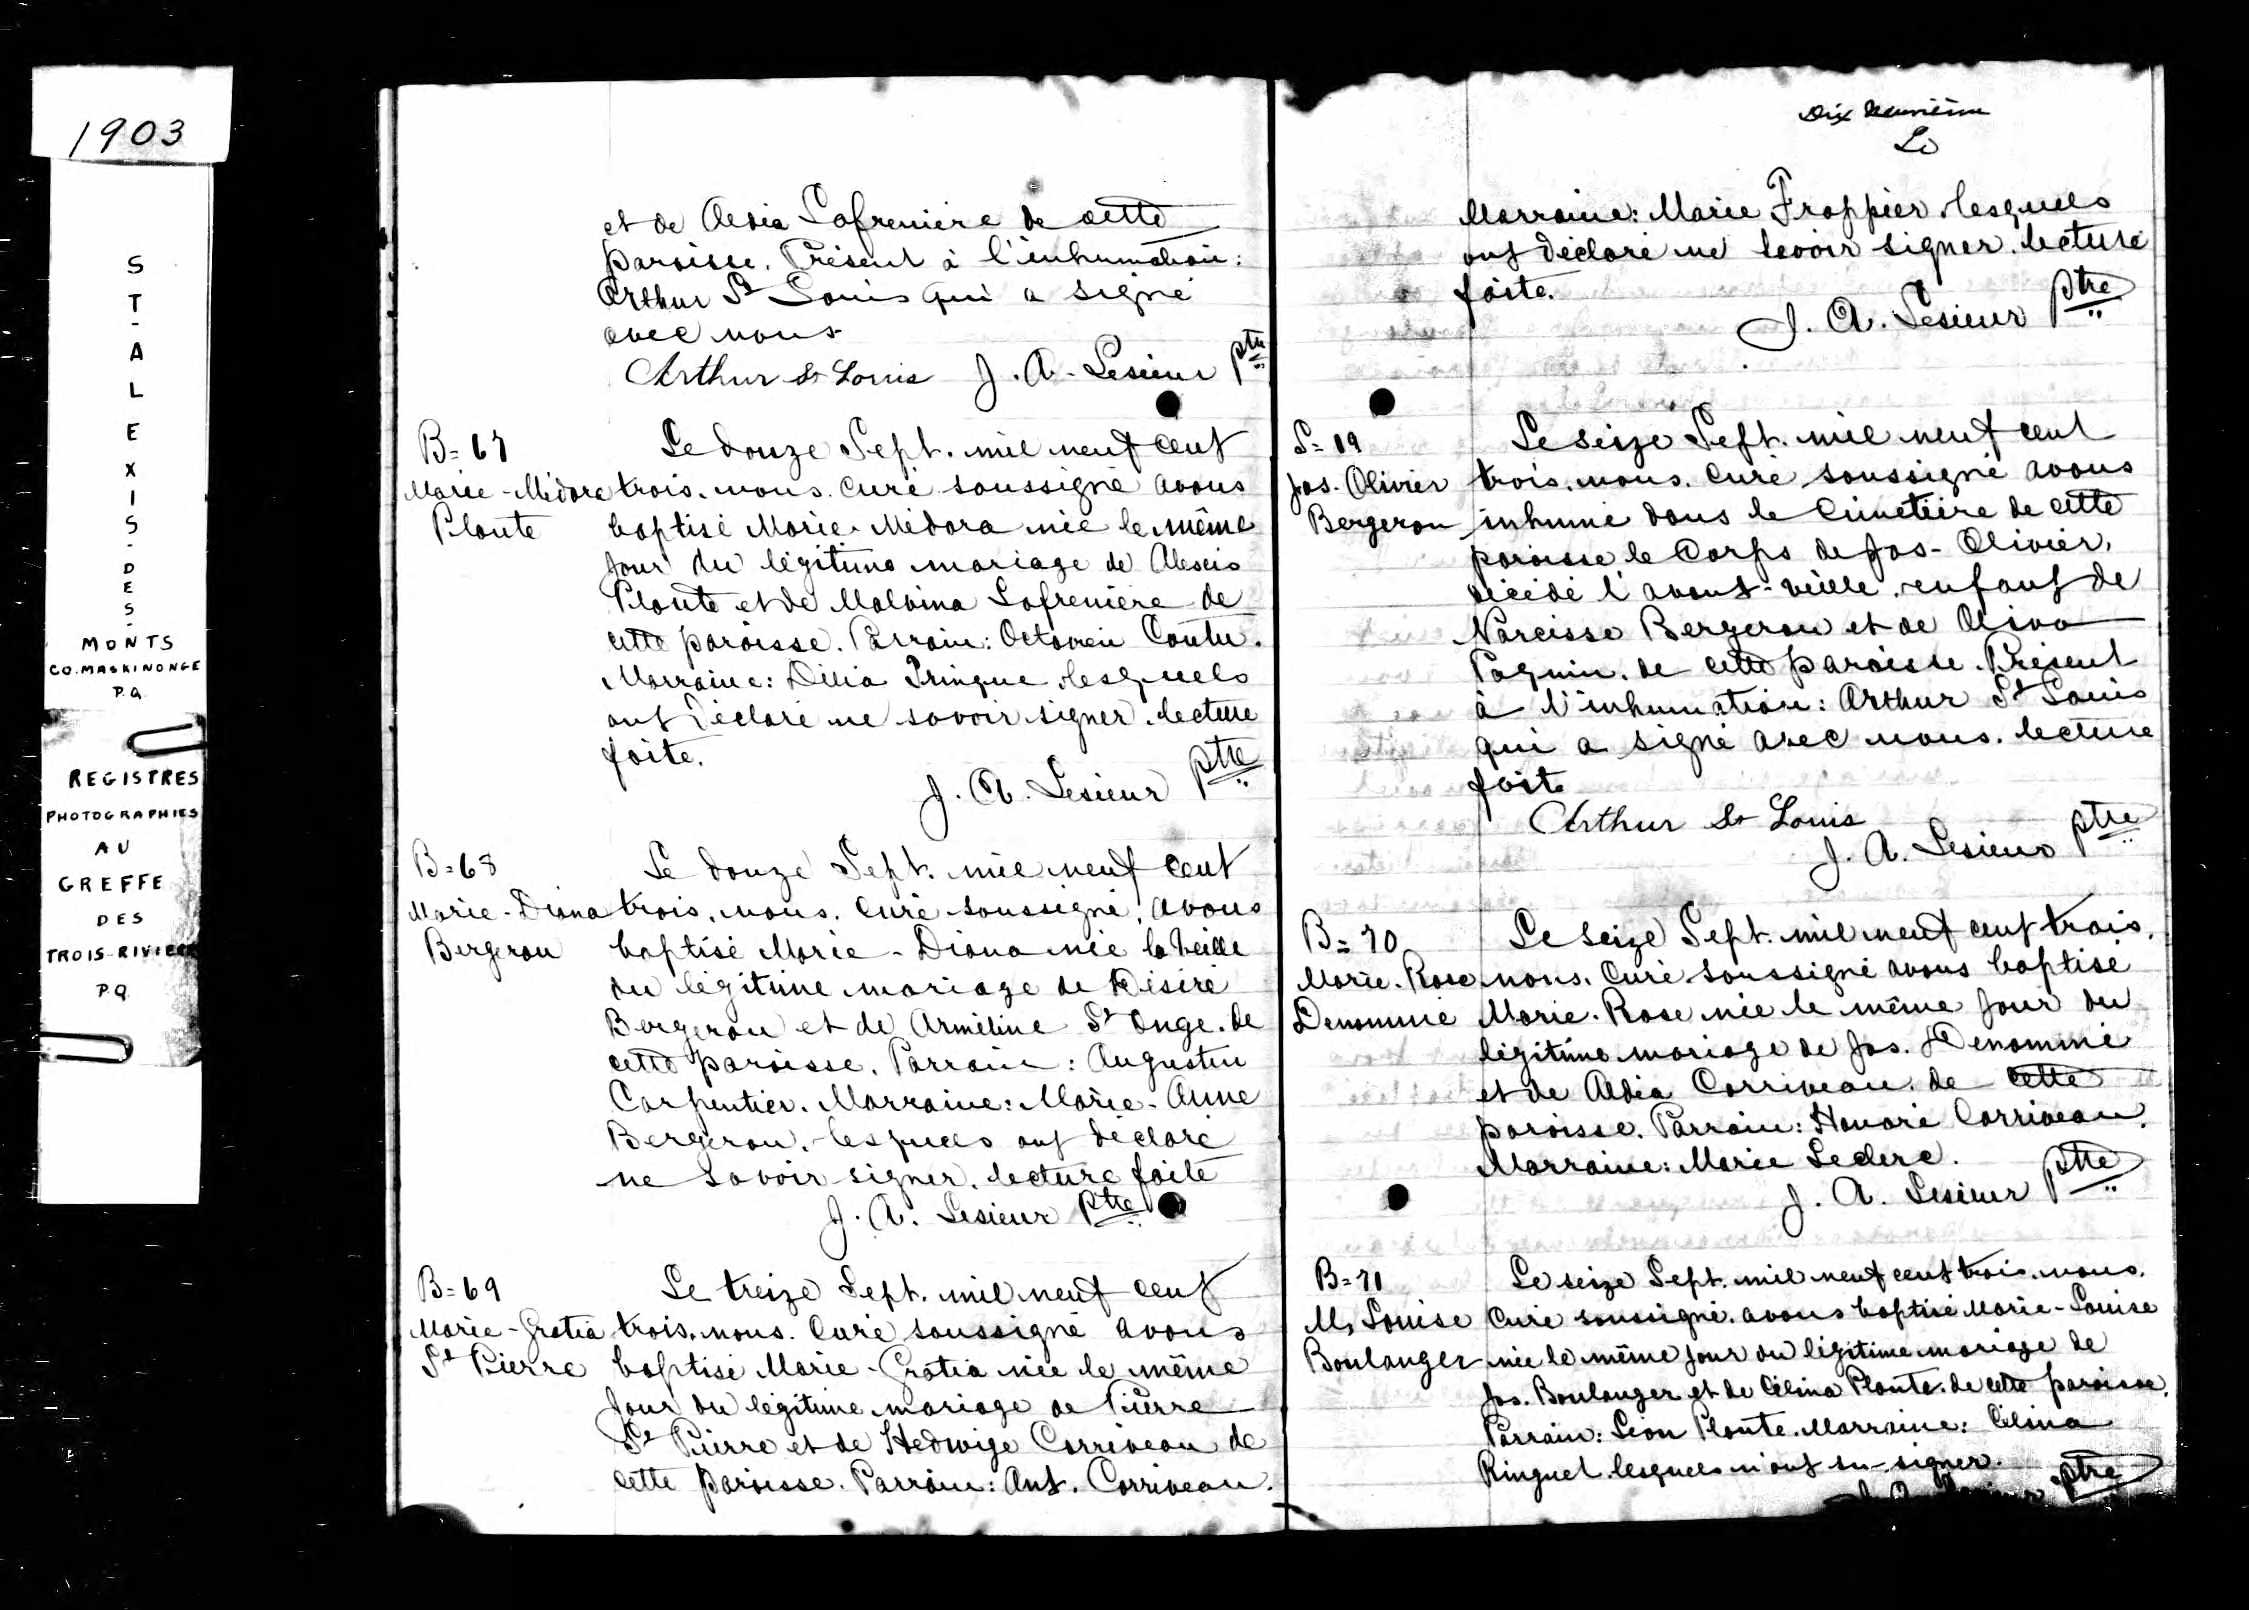 1903
ST-ALEXIS-DES-
MONTS
CO. MASKINONGE
P.Q.
REGISTRES
PHOTOGRAPHIES
AU
GREFFE
DES
TROIS-RIVIER
P.Q.
et de Aldia Lafrenière de cette
paroisse. Présent à l'inhumation:
Arthur St Louis qui a signé
avec nous
Arthur St Louis J. A. Lesieur ptre
B=67
Marie-Médora
Plante
Le douze Sept. mil neuf cent
trois, nous, Curé soussigné avons
baptisé Marie-Médora née le même
jour du légitime mariage de Alexis
Plante et de Malvina Lafrenière de
cette paroisse. Parrain: Octavien Coutu.
Marraine: Délia Pringue, lesquels
ont déclaré ne savoir signer. lecture
faite.
J. A. Lesieur ptre
B=68
Marie-Diana
Bergeron
Le douze Sept. mil neuf cent
trois, nous, Curé soussigné, avons
baptisé Marie-Diana née la veille
du légitime mariage de Désiré
Bergeron et de Arméline St Onge, de
cette paroisse. Parrain: Augustin
Carpentier. Marraine: Marie-Anne
Bergeron, lesquels ont déclaré
ne savoir signer, lecture faite
J. A. Lesieur ptre
B=69
Marie-Gratia
St Pierre
Le treize Sept. mil neuf cent
trois, nous, Curé soussigné avons
baptisé Marie-Gratia née le même
jour du légitime mariage de Pierre
St Pierre et de Hedwige Corriveau de
cette paroisse. Parrain: Ant. Corriveau.
Dix Neuvième
Marraine: Marie Frappier, lesquels
ont déclaré ne savoir signer. lecture
faite.
J. A. Lesieur ptre
S=19
Jos. Olivier
Bergeron
Le seize Sept. mil neuf cent
trois, nous, Curé soussigné avons
inhumé dans le Cimetière de cette
paroisse le Corps de Jos-Olivier,
décédé l'avant-veille, enfant de
Narcisse Bergeron et de Oliva
Paquin, de cette paroisse. Présent
à l'inhumation: Arthur St Louis
qui a signé avec nous. lecture
faite
Arthur St Louis
J. A. Lesieur ptre
B=70
Marie-Rose
Denommé
Le seize Sept. mil neuf cent trois,
nous, Curé soussigné avons baptisé
Marie-Rose née le même jour du
légitime mariage de Jos. Denommé
et de Aldia Corriveau, de cette
paroisse. Parrain: Honoré Corriveau.
Marraine: Marie Leclerc.
J. A. Lesieur ptre
B=71
M. Louise
Boulanger
Le seize Sept. mil neuf cent trois, nous,
Curé soussigné, avons baptisé Marie-Louise
née le même jour du légitime mariage de
Jos. Boulanger et de Célina Plante, de cette paroisse.
Parrain: Léon Plante. Marraine: Célina
Ringuet, lesquels n'ont su signer.
ptre